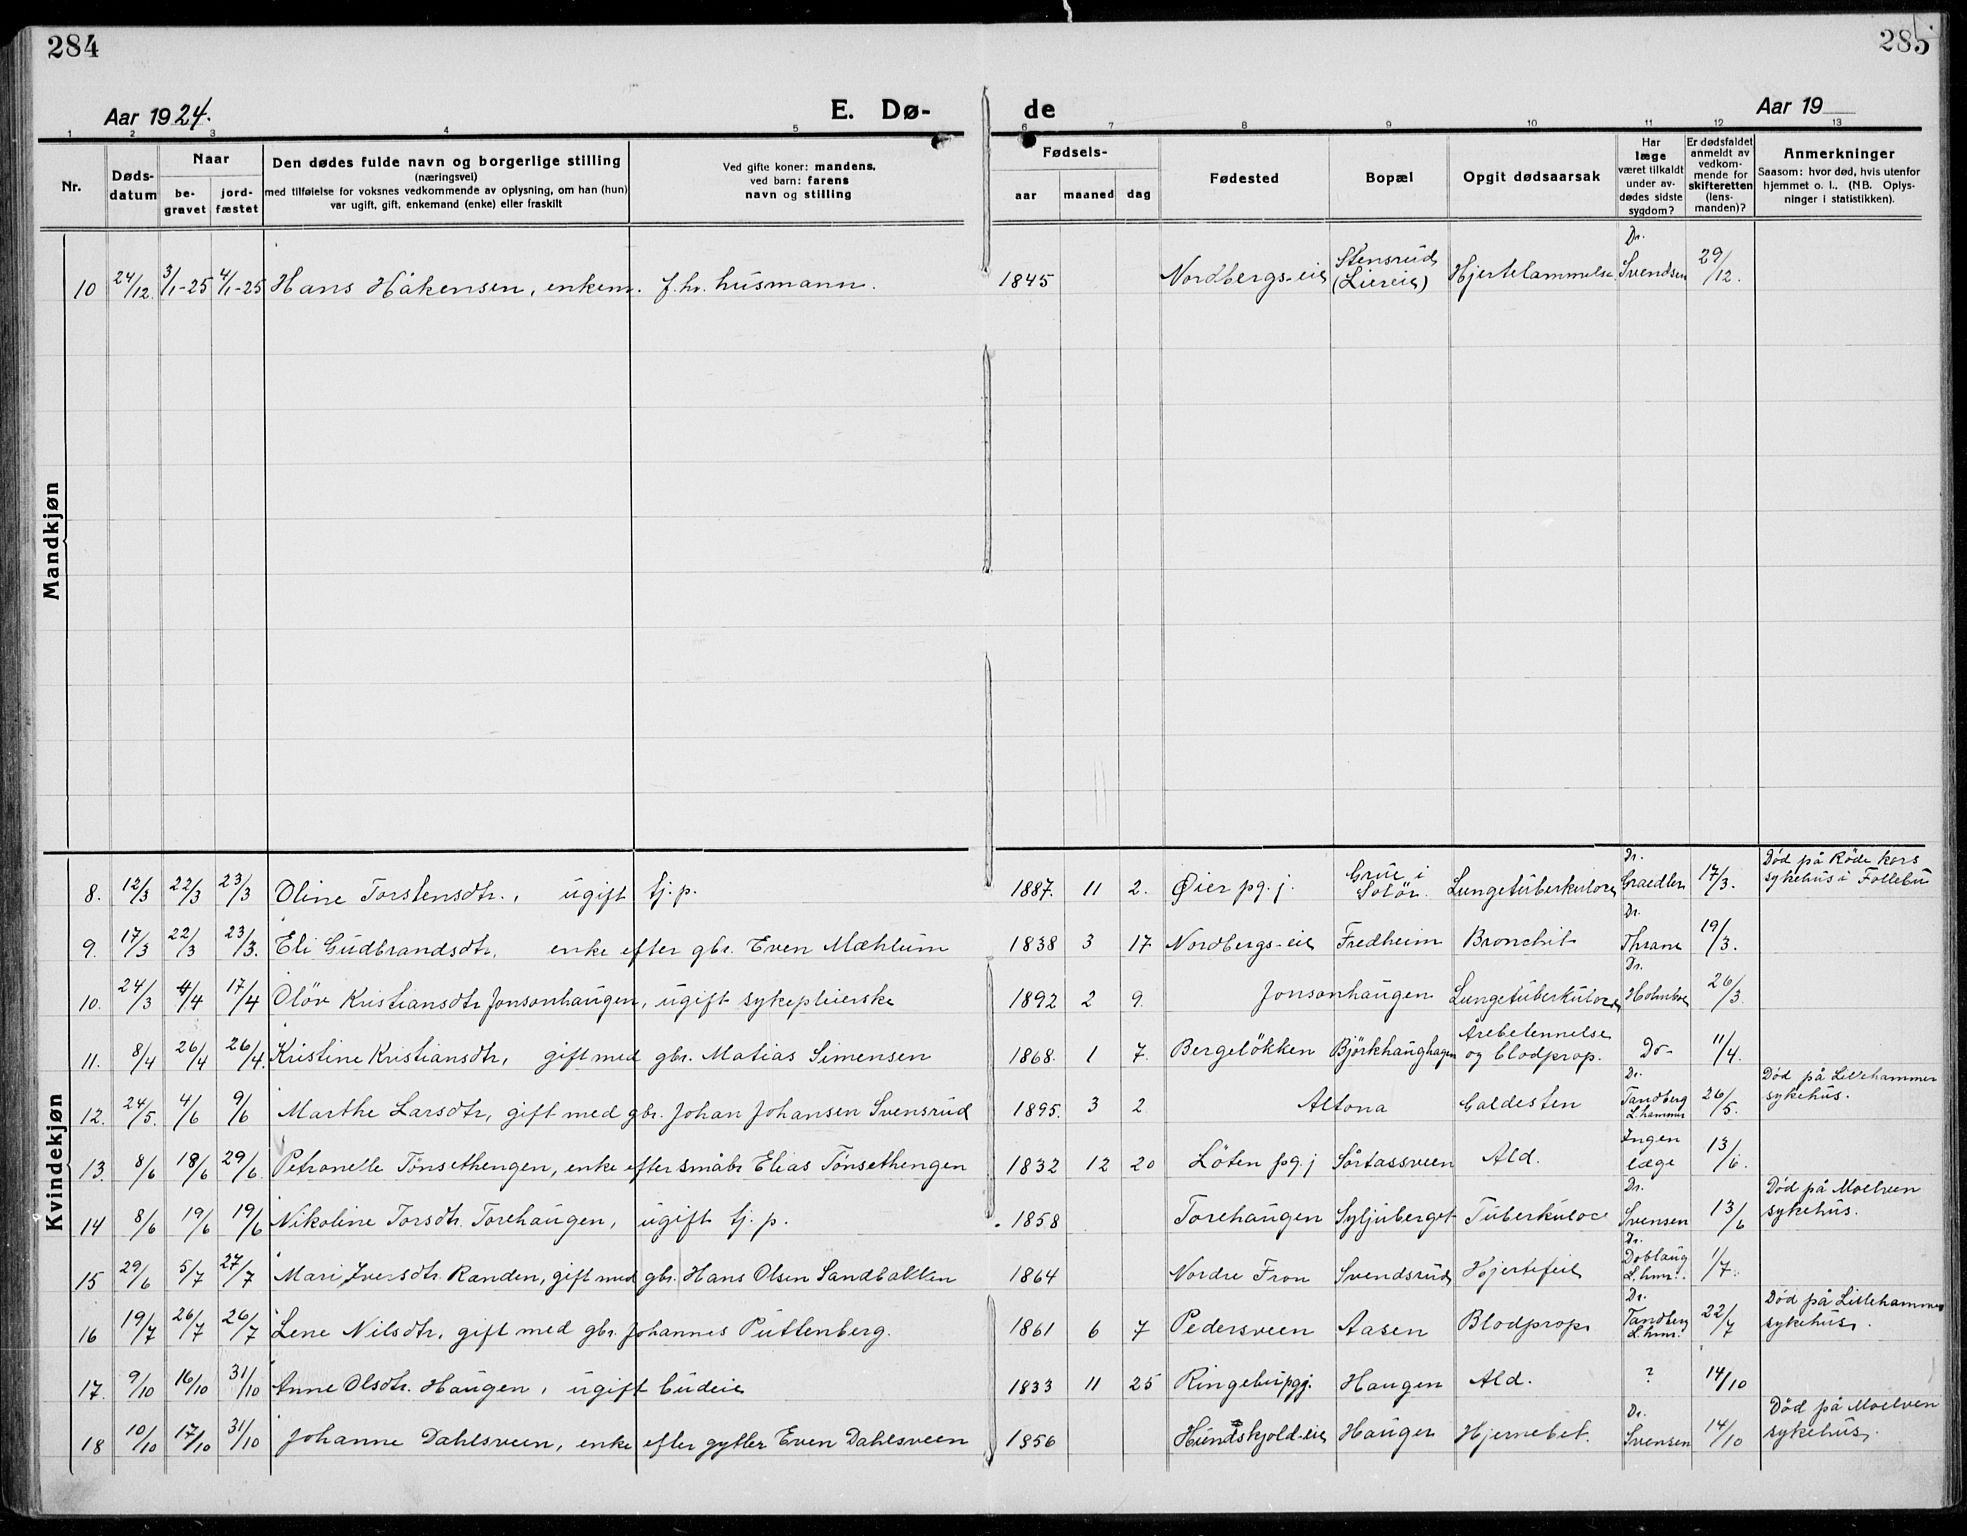 284
285
Aar 1924.
E. Dø-
de
Aar 19
1 2 3 4 5 6 7 8 9 10 11 12 13
Nr.
Døds-
datum
Naar
be-
gravet
jord-
fæstet
Den dødes fulde navn og borgerlige stilling
(næringsvei)
med tilføielse for voksnes vedkommende av oplysning, om han (hun)
var ugift, gift, enkemand (enke) eller fraskilt
Ved gifte koner: mandens,
ved barn: farens
navn og stilling
Fødsels-
aar maaned dag
Fødested
Bopæl
Opgit dødsaarsak
Har
læge
været tilkaldt
under av-
dødes sidste
sygdom?
Er dødsfaldet
anmeldt av
vedkom-
mende for
skifteretten
(lens-
manden)?
Anmerkninger
Saasom: hvor død, hvis utenfor
hjemmet o. l.. (NB. Oplys-
ninger i statistikken).
Mandkjøn
10 24/12. 3/1-25 4/1-25 Hans Håkensen, enkem. f. hv. husmann. 1845 Nordbergs-eie Stensrud (Liereie) Hjertelammelse Dr. Svendsen 29/12.
Kvindekjøn
8. 12/3 22/3 23/3 Oline Torstensdtr., ugift tj. p. 1887. 11 2. Øier pg. j. Grue i Solør. Lungetuberkulose Dr. Graedler 17/3. Död på Röde kors sykehus i Follebu
9. 17/3 22/3 23/3. Eli Gudbrandsdtr, enke efter gbr. Even Mæhlum 1838 3 17 Nordbergs-eie Fredheim Bronchit Dr. Thrane 19/3.
10. 24/3 4/4 17/4 Olöv Kristiansdtr Jonsonhaugen, ugift sykepleierske 1892 2 9. Jonsonhaugen Lungetuberkulose Dr. 26/3.
11. 8/4 26/4 26/4. Kristine Kristiansdtr, gift med gbr. Matias Simensen 1868. 1 7. Bergelökken Björkhaughagen Årebetennelse og blodprop. Do- 11/4.
12. 24/5. 4/6 9/6 Marthe Larsdtr, gift med gbr. Johan Johansen Svensrud 1895. 3 2. Altona Galdesten Dr. Tandberg L.hammer 26/5. Död på Lillehammer sykehus.
13. 8/6 18/6 29/6. Petronelle Tönsethengen, enke efter småbr Elias Tönsethengen 1832 12 20 Löten pg. j Sörtassveen Ald. Ingen læge 13/6.
14 8/6 19/6 19/6 Nikoline Torsdtr. Torehaugen, ugift tj. p. 1858 Torehaugen Syljuberget Tuberkulose Dr. Svensen 13/6 Död på Moelven sykehus.
15 29/6 5/7 27/7 Mari Iversdtr. Randen, gift med gbr. Hans Olsen Sandbakken 1864 Nordre Fron Svendsrud Hjertefeil Dr. Doblaug L.hmr. 1/7.
16 19/7 26/7 26/7 Lene Nilsdtr. gift med gbr. Johannes Puttenberg. 1861 6 7 Pedersveen Aasen Blodprop Dr. Tandberg L.hmr. 22/7 Död på Lillehammer sykehus.
17. 9/10 16/10 31/10 Anne Olsdtr. Haugen, ugift budeie 1833 11 25 Ringebu pgj. Haugen Ald. ? 14/10
18 10/10 17/10 31/10 Johanne Dahlsveen, enke efter gytler Even Dahlsveen 1856 Hundskjold-eie Haugen Hjernebet. Dr. Svensen 14/10 Död på Moelven sykehus.